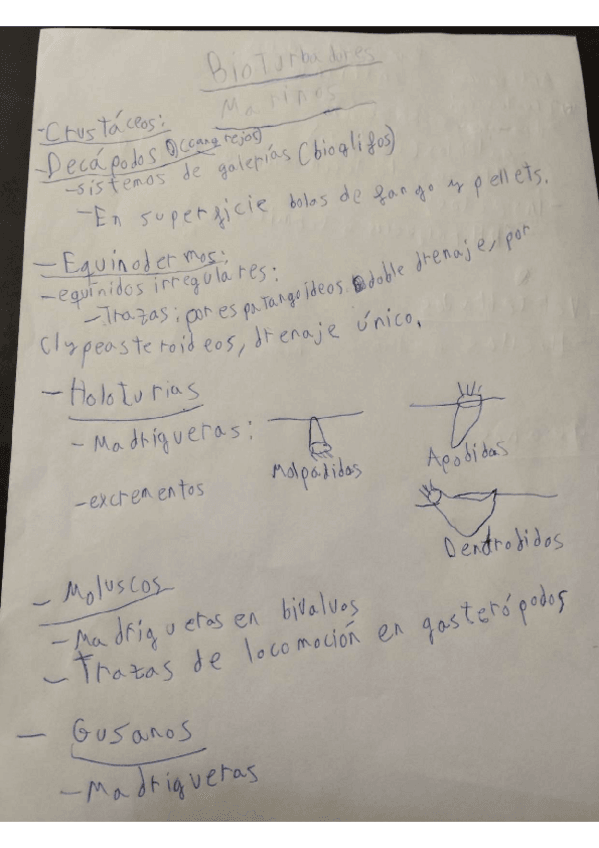 Bioturbadores
Marinos
-Crustáceos:
-Decápodos (cangrejos)
-sistemos de galerías (bioglifos)
-En superficie bolas de fango y pellets.
- Equinodermos:
-equínidos irregulares:
-Trazas: por espatangoideos doble drenaje, por
Clypeasteroideos, drenaje único.
- Holoturias
- Madrigueras:
Molpadidos
Apodidas
-excrementos
Dendrodidos
- Moluscos
-Madrigueras en bivalvos
- Trazas de locomoción en gasterópodos
- Gusanos
-Madrigueras